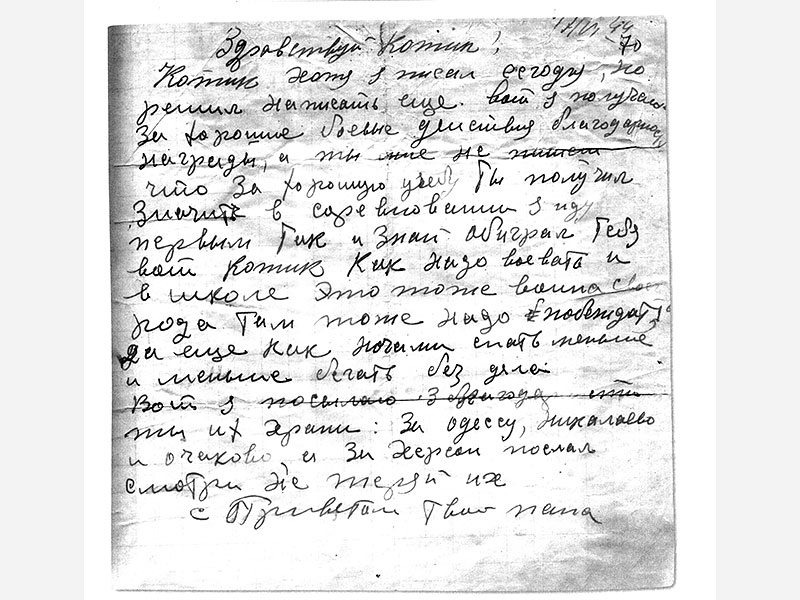 44
70
Здравствуй Котик!
Котик хотя я писал сегодня, но
решил написать еще. вот я получаю
за хорошие боевые действия благодарность
награды, а ты мне не пишеш
что за хорошую учебу Ты получил
значить в соревновании я иду
первым Так и знай обиграл Тебя
вот Котик Как надо воевать и
в школе это тоже война
рода Там тоже надо побеждать
да еще как ночами спать меньше
и меньше бегать без дела
Вот я посылаю 3
ты их храни: За одессу, николаево
и очаково и за Херсон послал
смотри не теряй их
с Приветом Твой папа